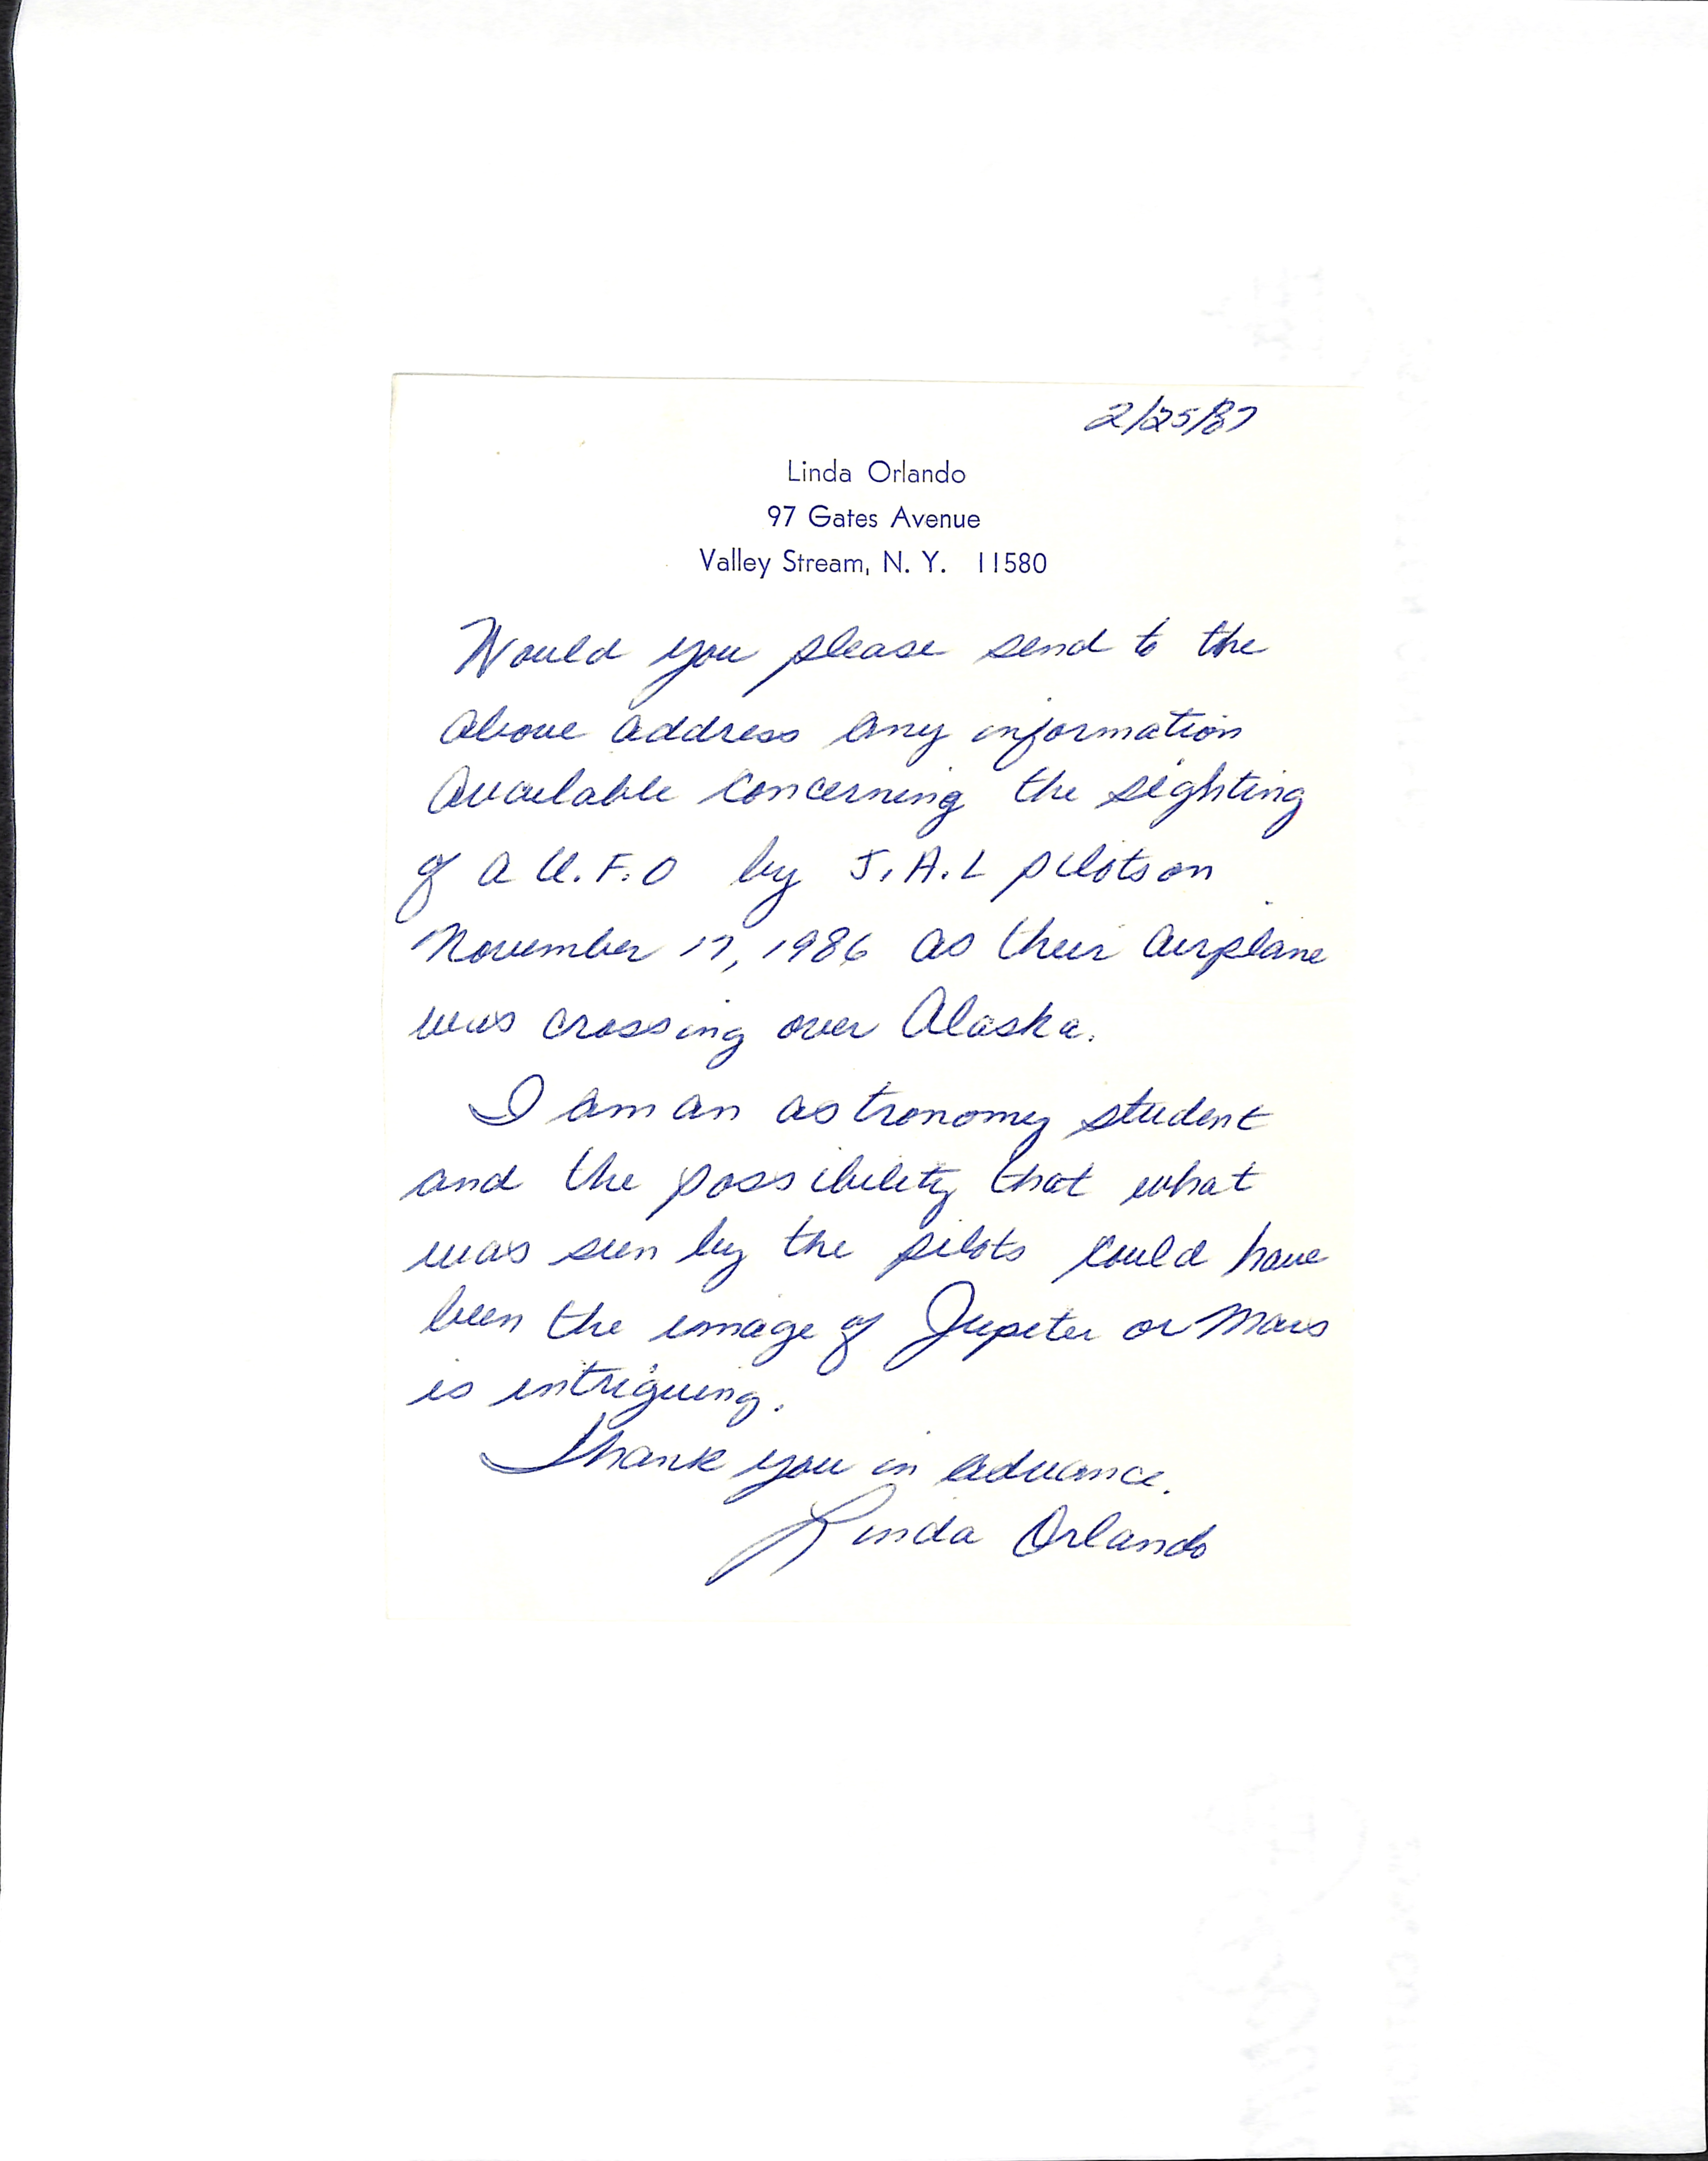 2/25/87
Linda Orlando
97 Gates Avenue
Valley Stream, N. Y. 11580
Would you please send to the
above address any information
available concerning the sighting
of a U.F.O by J.A.L pilots on
November 17, 1986 as their airplane
was crossing over Alaska.
I am an astronomy student
and the possibility that what
was seen by the pilots could have
been the image of Jupiter or Mars
is intriguing.
Thank you in advance.
Linda Orlando